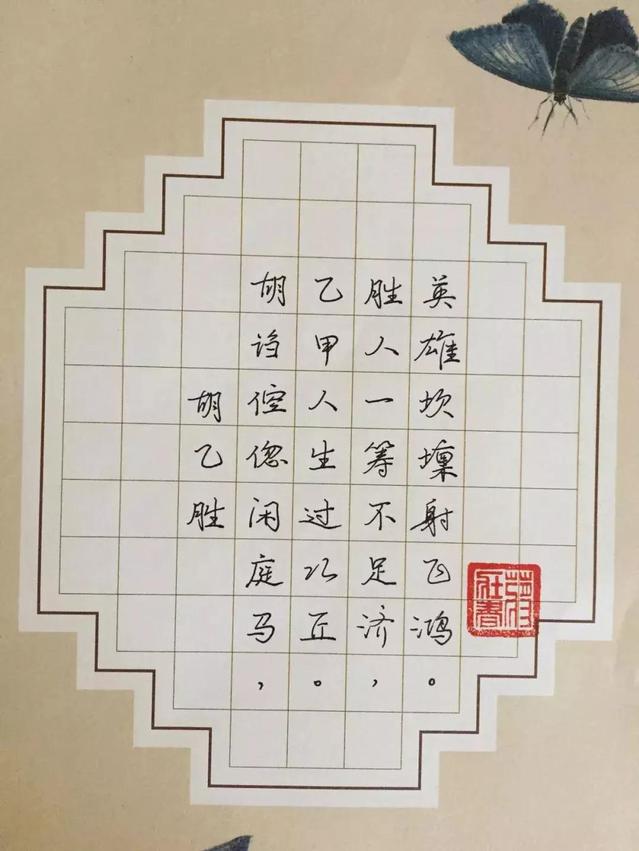 胡乙胜
胡诌倥偬闲庭马，
乙甲人生过以丘。
胜人一筹不足济，
英雄坎壈射飞鸿。